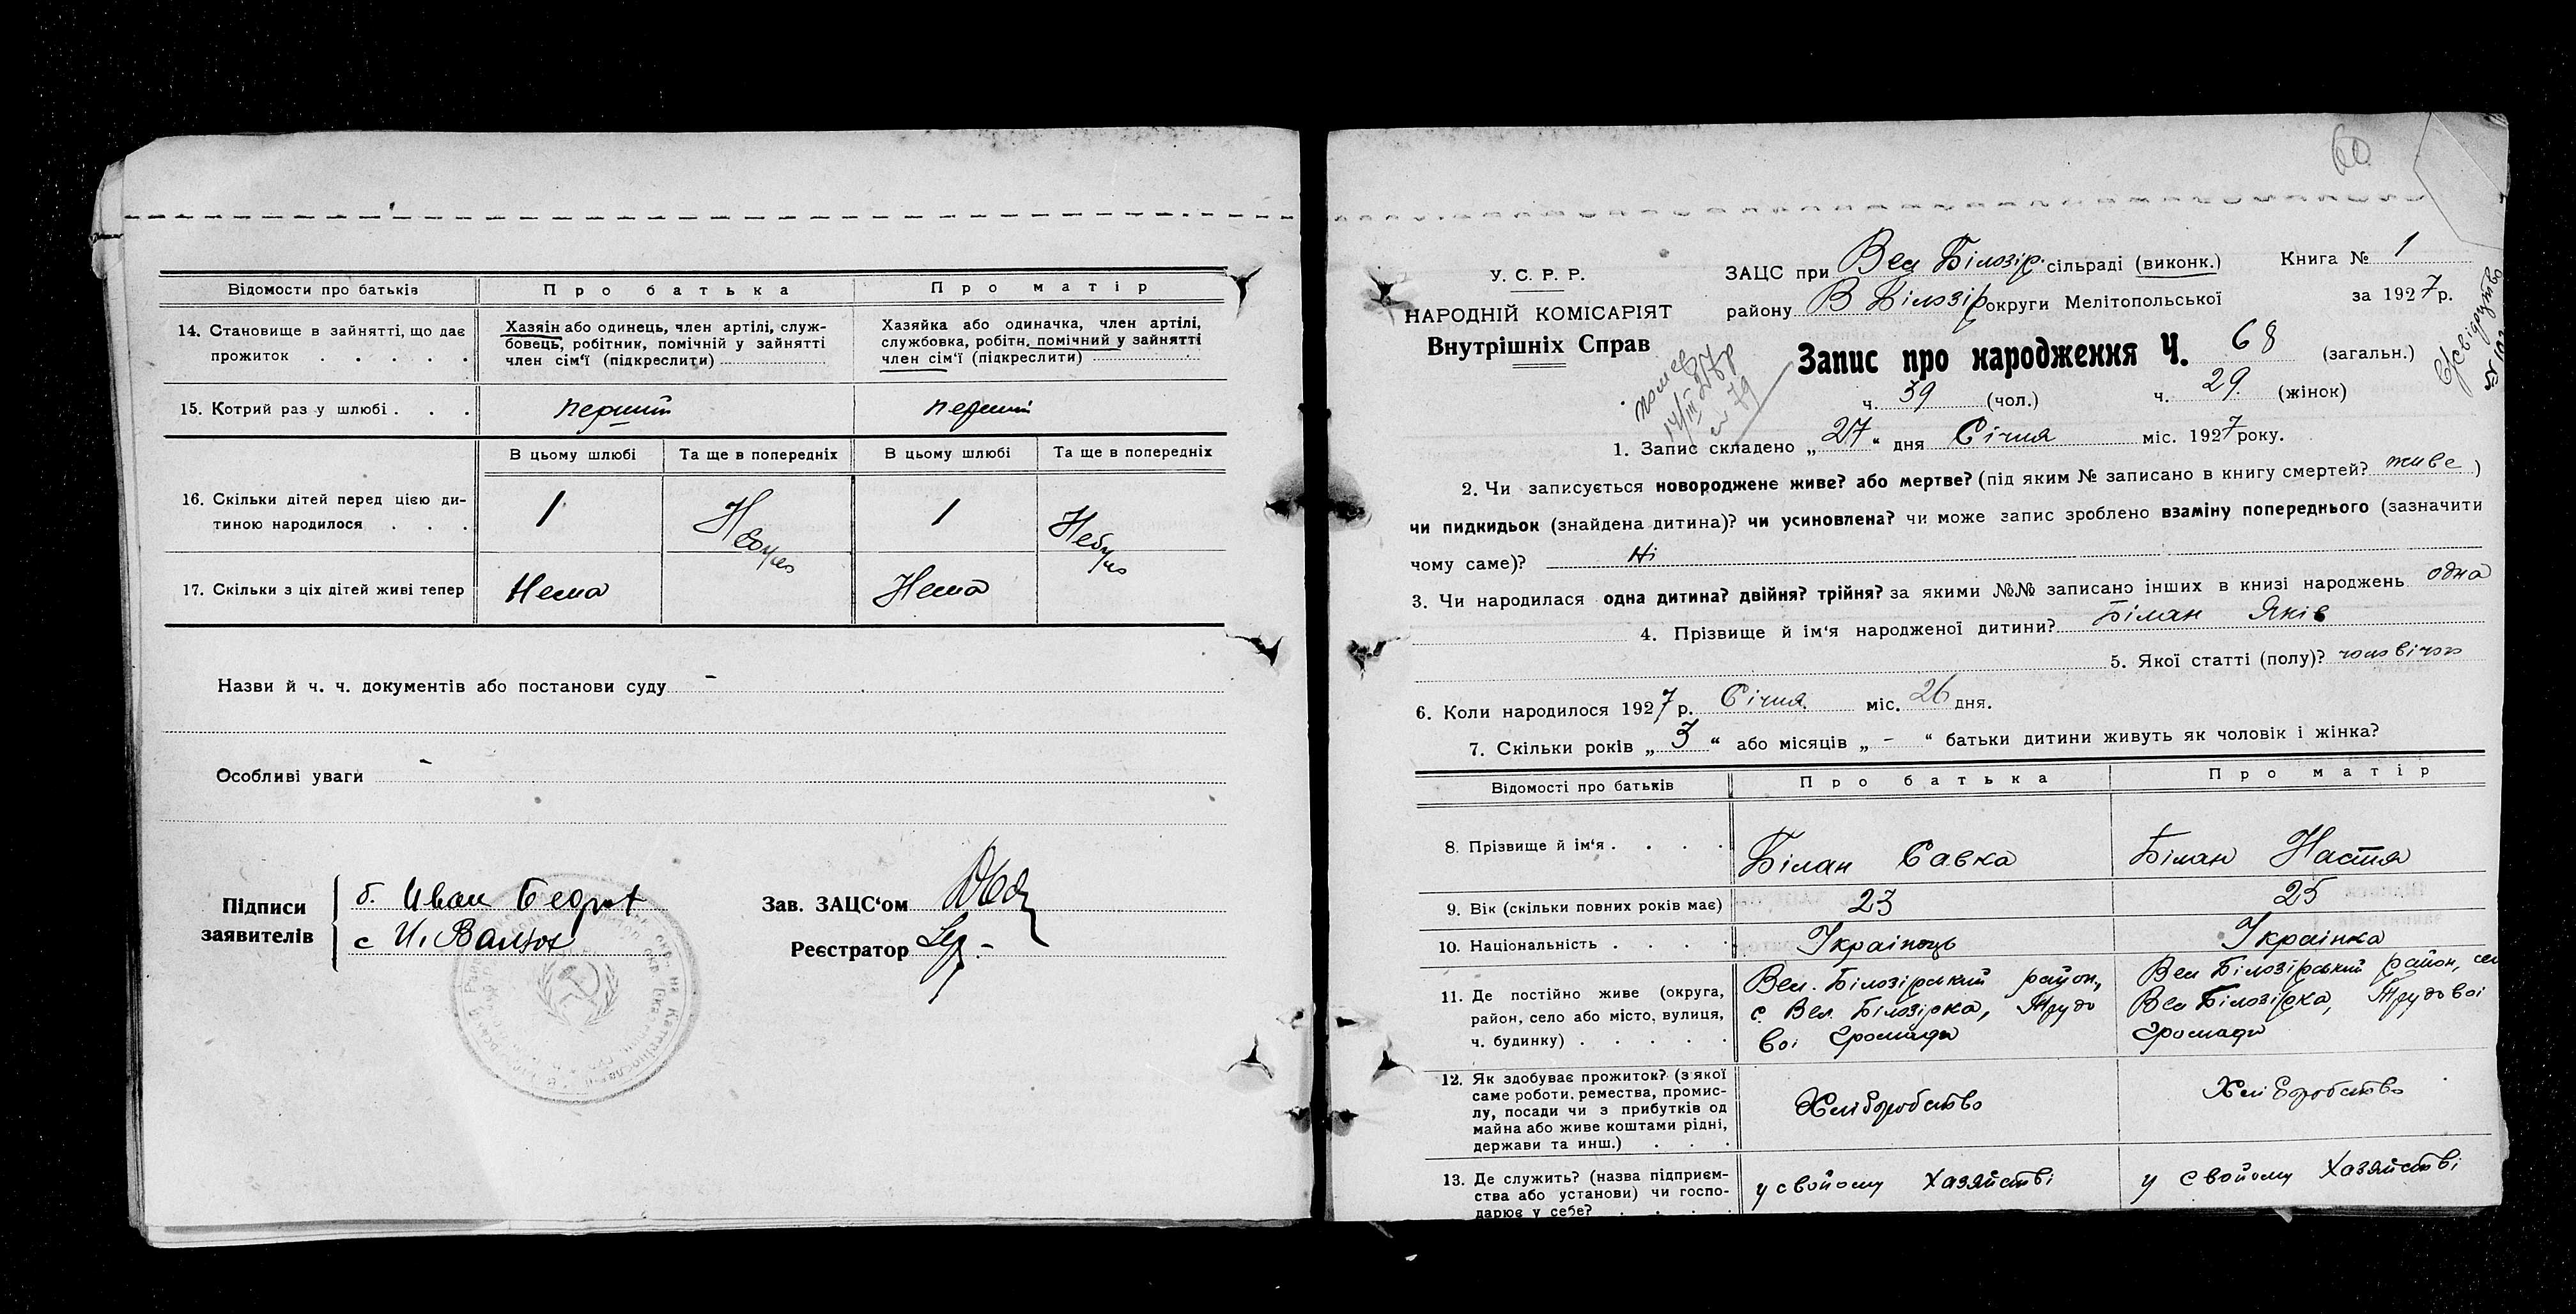 Відомости про батьків
Про батька
Про матір
14. Становище в зайнятті, що дає прожиток . . . . .
Хазяін або одинець, член артілі, служ-
бовець, робітник, помічній у зайнятті
член сім'ї (підкреслити)
Хазяйка або одиначка, член артілі,
службовка, робітн. помічний у зайнятті
член сім'ї (підкреслити)
15. Котрий раз у шлюбі . . .
перший
перший
В цьому шлюбі
Та ще в попередніх
В цьому шлюбі
Та ще в попередніх
16. Скільки дітей перед цією ди-
тиною народилося . . .
1
1
17. Скільки з ціх дітей живі тепер
Нема
Нема
Назви й ч. ч. документів або постанови суду -
Особливі уваги -
Підписи
заявителів
б. Иван
с И.
Зав. ЗАЦС'ом
Реєстратор
60
У. С. Р. Р.
НАРОДНІЙ КОМІСАРІЯТ
Внутрішніх Справ
ЗАЦС при Вел Білозір. сільраді (виконк.)
Книга № 1
району В Білозір округи Мелітопольської
за 1927 р.
Запис про народження Ч. 68 (загальн.)
ч. 39 (чол.)
ч. 29. (жінок)
1. Запис складено „27" дня Січня міс. 1927 року.
2. Чи записується новороджене живе? або мертве? (під яким № записано в книгу смертей? живе)
чи пидкидьок (знайдена дитина)? чи усиновлена? чи може запис зроблено взаміну попереднього (зазначити
чому саме)? Ні
3. Чи народилася одна дитина? двійня? трійня? за якими №№ записано інших в книзі народжень одна
4. Прізвище й ім'я народженої дитини? Білан Яків
5. Якої статті (полу)?
6. Коли народилося 1927 р. Січня міс. 26 дня.
7. Скільки років „3" або місяців „-" батьки дитини живуть як чоловік і жінка?
Відомості про батьків
Про батька
Про матір
8. Прізвище й ім'я . . . .
Білан Савка
Білан Настя
9. Вік (скільки повних років має)
23
25
10. Національність . . . .
Украінець
Украінка
11. Де постійно живе (округа,
район, село або місто, вулиця,
ч. будинку) . . . . .
Вел. Білозірський район,
с. Вел. Білозірка, Трудо
воі Громади
Вел Білозірський район, сел
Вел Білозірка, Трудовоі
Громади
12. Як здобуває прожиток? (з якої
саме роботи, ремества, промис-
лу, посади чи з прибутків од
майна або живе коштами рідні,
держави та инш.) . . .
Хліборобство
Хліборобство
13. Де служить? (назва підприєм-
ства або установи) чи госпо-
дарює у себе? . . . .
у свойому хазяйстві
у свойому хазяйстві